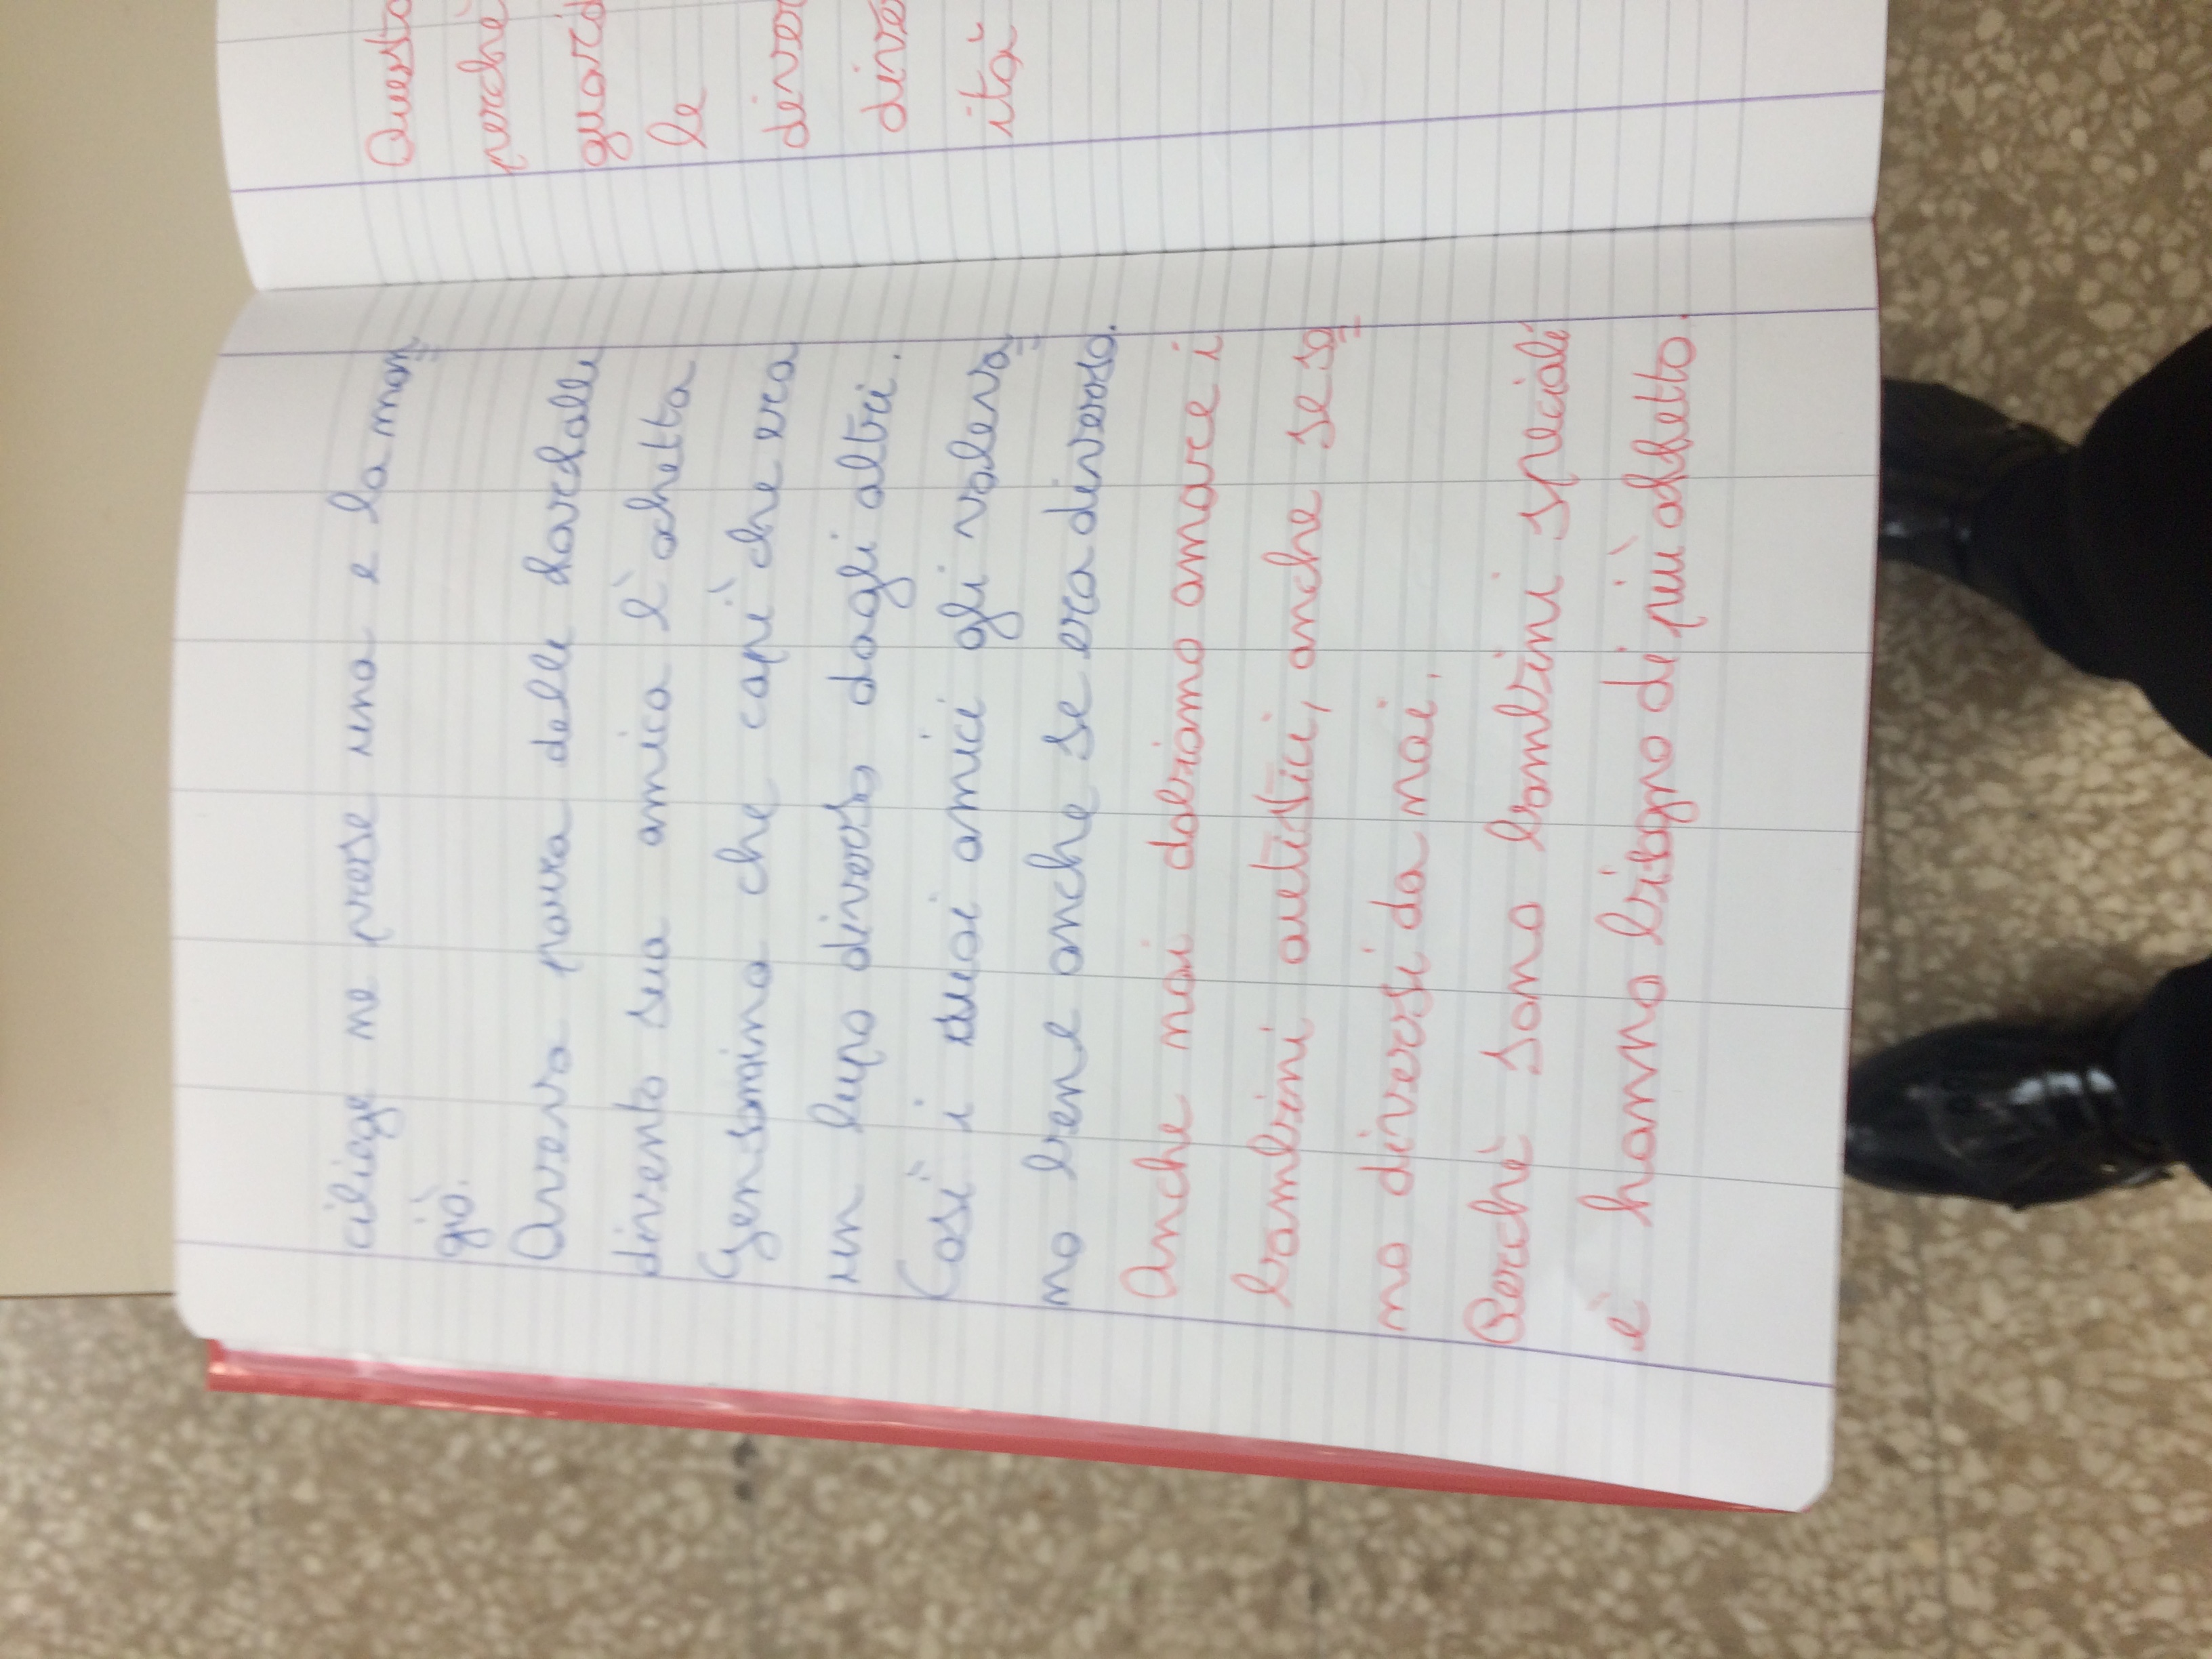 ciliage ne prese una e la man
giò.
Aveva paura delle farfalle
diventò sua amica l'ochetta
Gensomina che capì che era
un lupo diverso dagli altri.
Così i suoi amici gli voleva
no bene anche se era diverso.
Anche noi dobiamo amare i
bambini autistici, anche se so
no diversi da noi.
Perchè sono bambini speciali
e hanno bisogno di più affetto.
Questo
perchè
le
diver
dive
ità